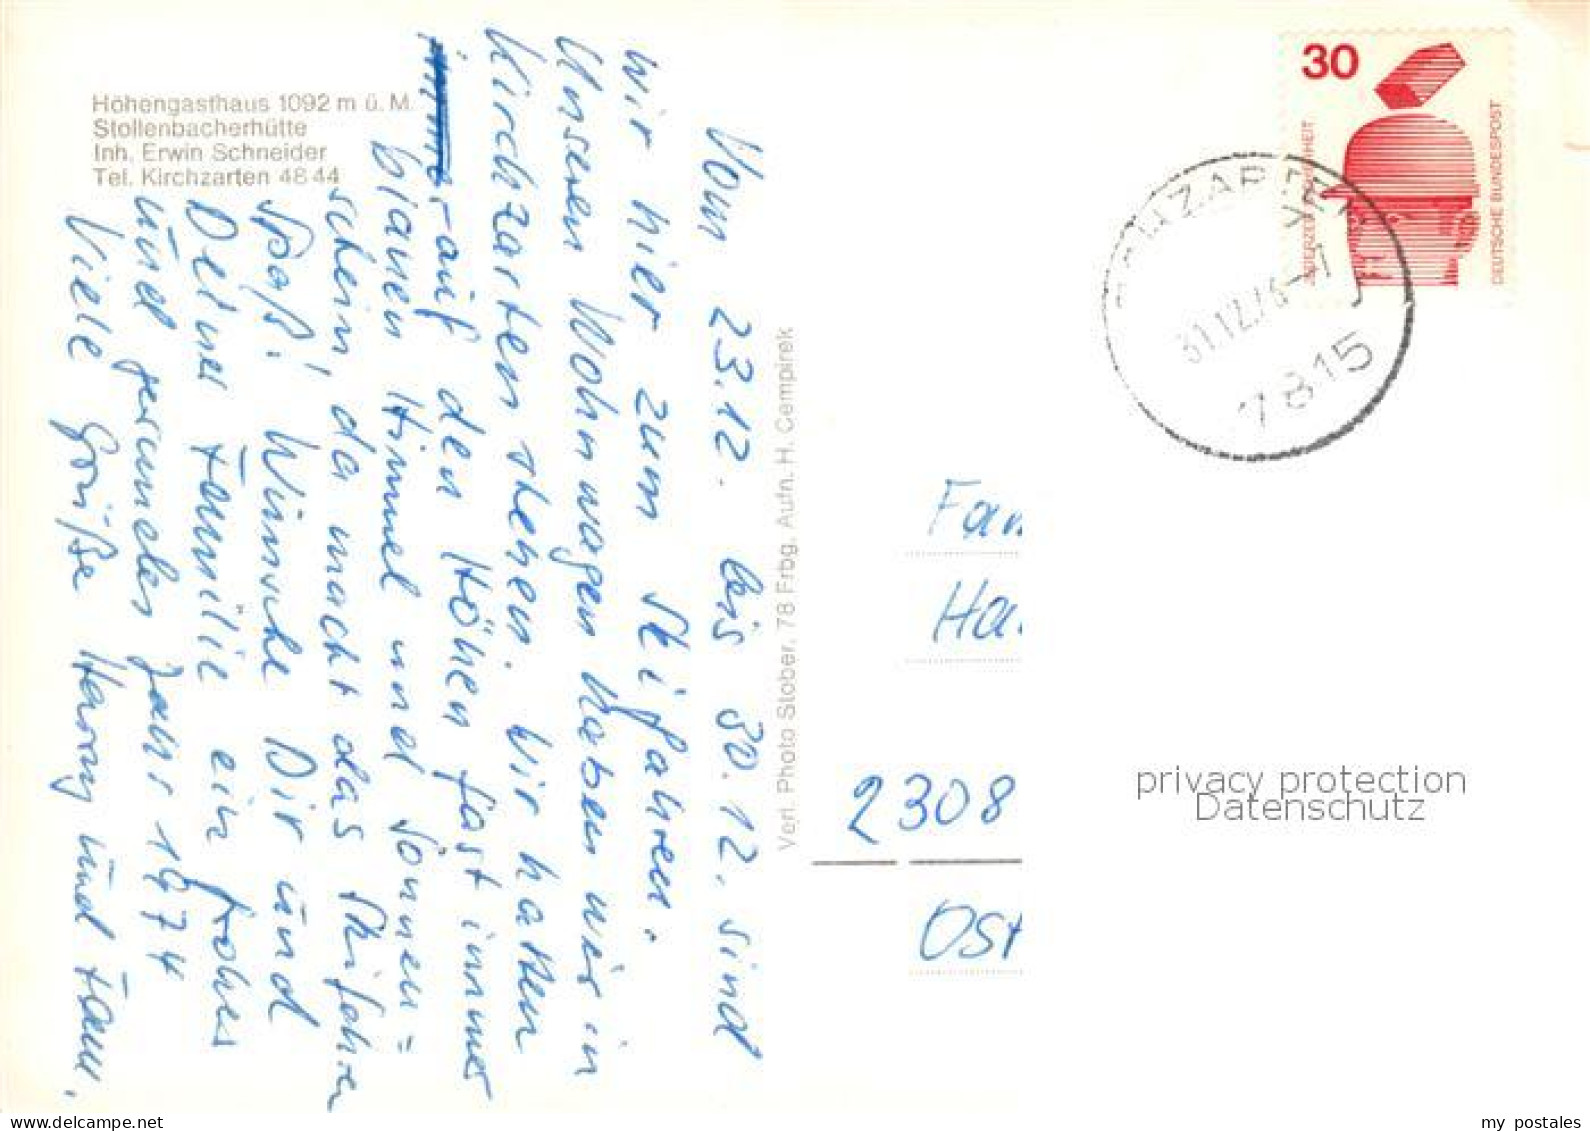 Höhengasthaus 1092 m ü. M.
Stollenbacherhütte
Inh. Erwin Schneider
Tel. Kirchzarten 48 44
Vom 23.12. bis 30.12. sind
wir hier zum Skifahren.
Unseren Wohnwagen haben wir in
Kirchzarten stehen. Wir hatten
auf den Höhen fast immer
blauen Himmel und Sonnen=
schein, da macht das Skifahren
Spaß! Wünsche Dir und
Deiner Familie ein frohes
und gesundes Jahr 1974
Viele Grüße Harry und Fam.
Verl. Photo Stober, 78 Frbg. Aufn. H. Cempirek
30
JEDERZEIT SICHERHEIT
DEUTSCHE BUNDESPOST
31.12.73-17
7815
Fam
Ha
2308
Ost
privacy protection
Datenschutz
my postales